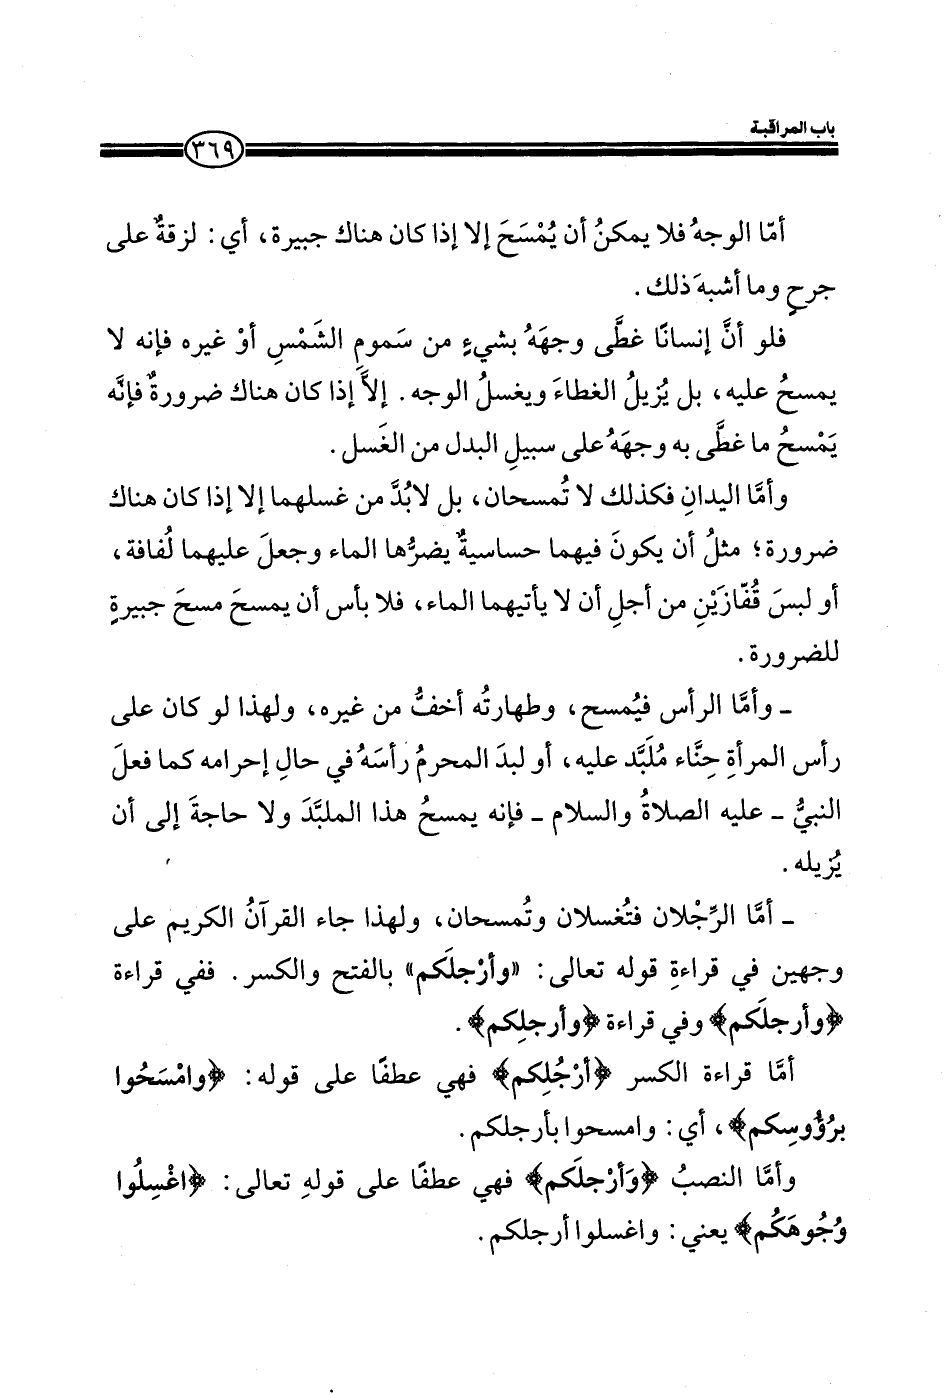 باب المراقبة
٣٦٩
أمّا الوجهُ فلا يمكنُ أن يُمْسَحَ إلا إذا كان هناك جبيرة، أي: لزقةٌ على
جرحٍ وما أشبهَ ذلك.
فلو أنَّ إنسانًا غطَّى وجهَهُ بشيءٍ من سَمومِ الشَمْسِ أوْ غيره فإنه لا
يمسحُ عليه، بل يُزيلُ الغطاءَ ويغسلُ الوجه. إلاَّ إذا كان هناك ضرورةٌ فإنَّه
يَمْسحُ ما غطَّى به وجهَهُ على سبيلِ البدل من الغَسل.
وأمَّا اليدانِ فكذلك لا تُمسحان، بل لابُدَّ من غسلهما إلا إذا كان هناك
ضرورة؛ مثلُ أن يكونَ فيهما حساسيةٌ يضرُّها الماء وجعلَ عليهما لُفافة،
أو لبسَ قُفّازَيْنِ من أجلِ أن لا يأتيهما الماء، فلا بأس أن يمسحَ مسحَ جبيرةٍ
للضرورة.
ـ وأمَّا الرأس فيُمسح، وطهارتُه أخفُّ من غيره، ولهذا لو كان على
رأس المرأةِ حِنَّاء مُلَبَّد عليه، أو لبدَ المحرمُ رأسَهُ في حالِ إحرامه كما فعلَ
النبيُّ ـ عليه الصلاةُ والسلام ـ فإنه يمسحُ هذا الملبَّدَ ولا حاجةَ إلى أن
يُزيله.
ـ أمَّا الرِّجْلان فتُغسلان وتُمسحان، ولهذا جاء القرآنُ الكريم على
وجهين في قراءةِ قوله تعالى: «وأرْجلَكم» بالفتح والكسر. ففي قراءة
﴿وأرجلَكم﴾ وفي قراءة ﴿وأرجلِكم﴾.
أمَّا قراءة الكسر ﴿أرْجُلِكم﴾ فهي عطفًا على قوله: ﴿وامْسَحُوا
برُؤُوسِكم﴾، أي: وامسحوا بأرجلكم.
وأمَّا النصبُ ﴿وَأرْجلَكم﴾ فهي عطفًا على قولهِ تعالى: ﴿اغْسِلُوا
وُجُوهَكُم﴾ يعني: واغسلوا أرجلكم.